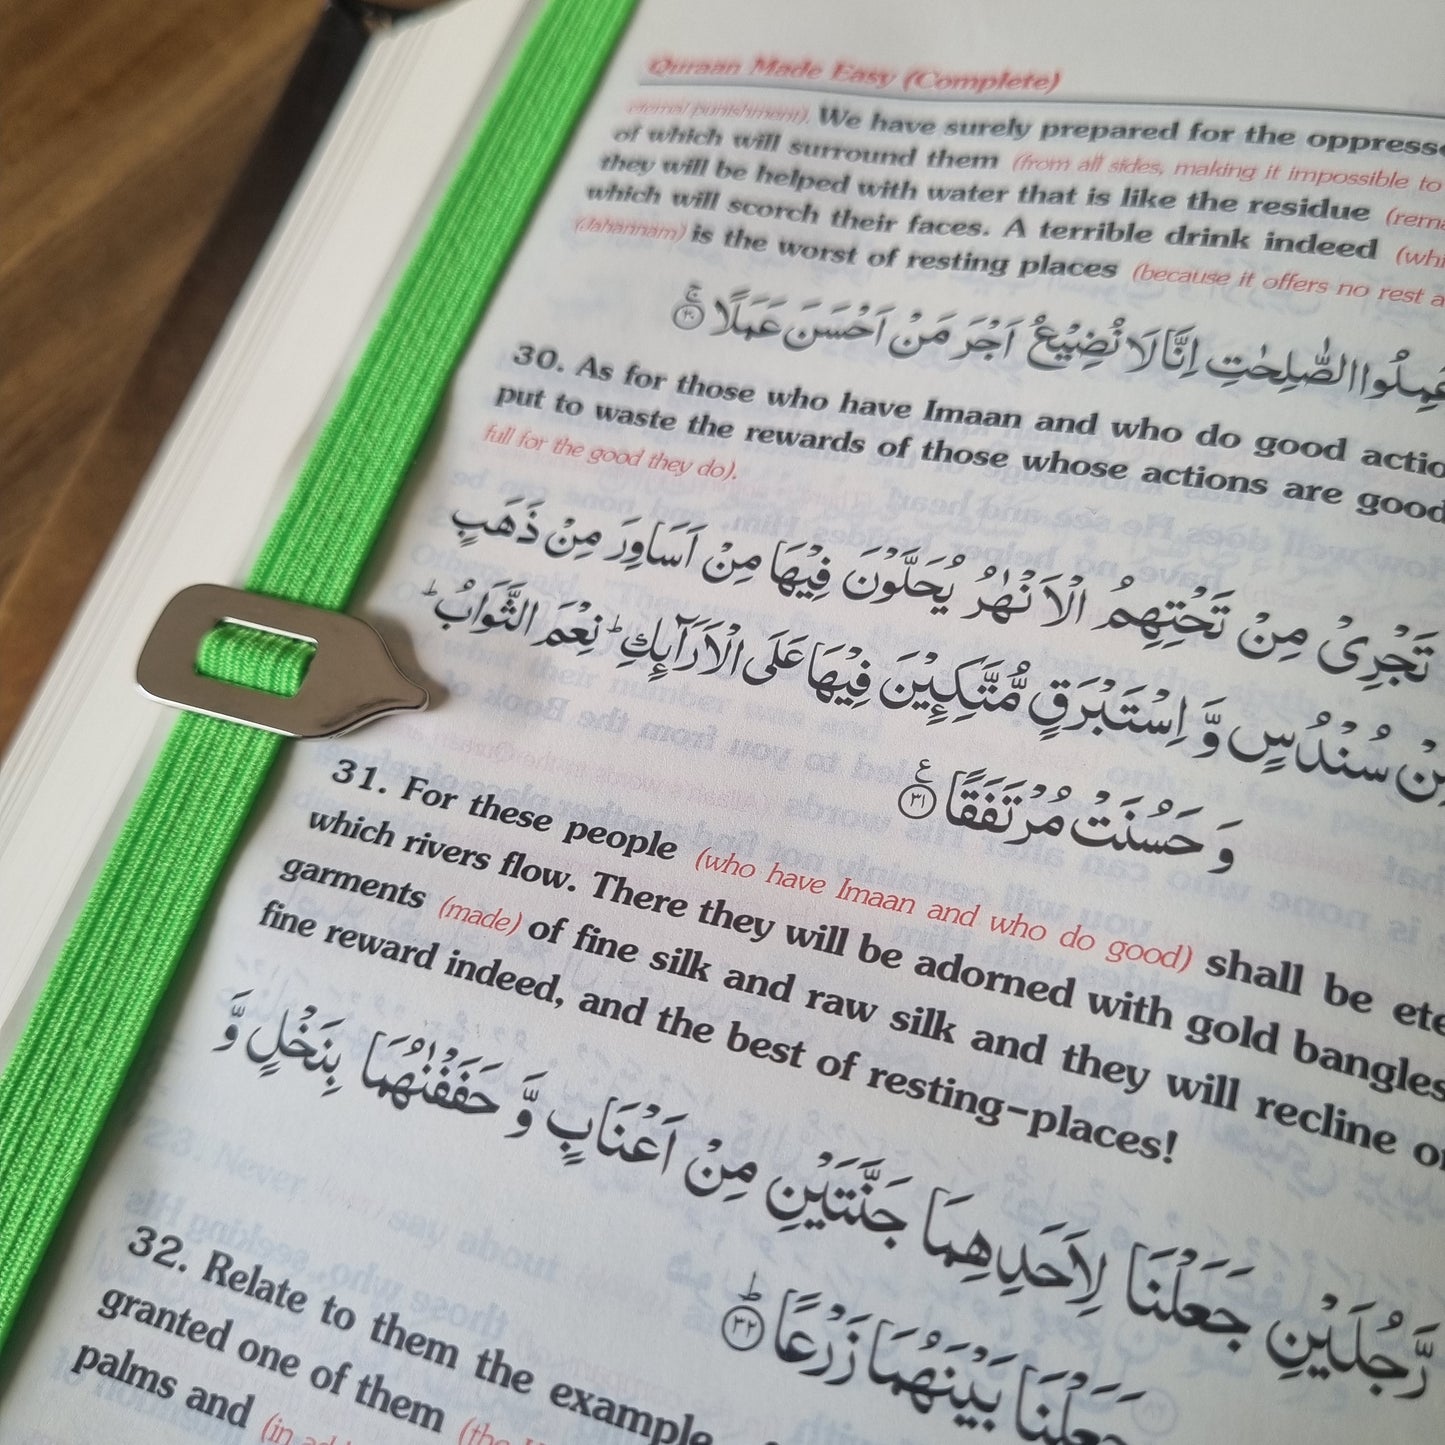 Quraan Made Easy (Complete)
eternal punishment). We have surely prepared for the
of which will surround them (from all sides, making it impossible to
they will be helped with water that is like the residue
which will scorch their faces. A terrible drink indeed
(Jahannam) is the worst of resting places (because it offers no rest
الصّٰلِحٰتِ اِنَّا لَا نُضِيْعُ اَجْرَ مَنْ اَحْسَنَ عَمَلًا ۚ ﴿۳۰﴾
30. As for those who have Imaan and who do good
put to waste the rewards of those whose actions are good
full for the good they do).
تَجْرِيْ مِنْ تَحْتِهِمُ الْاَنْهٰرُ يُحَلَّوْنَ فِيْهَا مِنْ اَسَاوِرَ مِنْ ذَهَبٍ
سُنْدُسٍ وَّ اِسْتَبْرَقٍ مُّتَّكِـِٕيْنَ فِيْهَا عَلَى الْاَرَآىِٕكِ ؕ نِعْمَ الثَّوَابُ ؕ
وَ حَسُنَتْ مُرْتَفَقًا ﴿۳۱﴾ ع
31. For these people (who have Imaan and who do good) shall be
which rivers flow. There they will be adorned with gold bangles
garments (made) of fine silk and raw silk and they will recline
fine reward indeed, and the best of resting-places!
رَّجُلَيْنِ جَعَلْنَا لِاَحَدِهِمَا جَنَّتَيْنِ مِنْ اَعْنَابٍ وَّ حَفَفْنٰهُمَا بِنَخْلٍ وَّ
جَعَلْنَا بَيْنَهُمَا زَرْعًا ؕ ﴿۳۲﴾
32. Relate to them the example
granted one of them
palms and (in